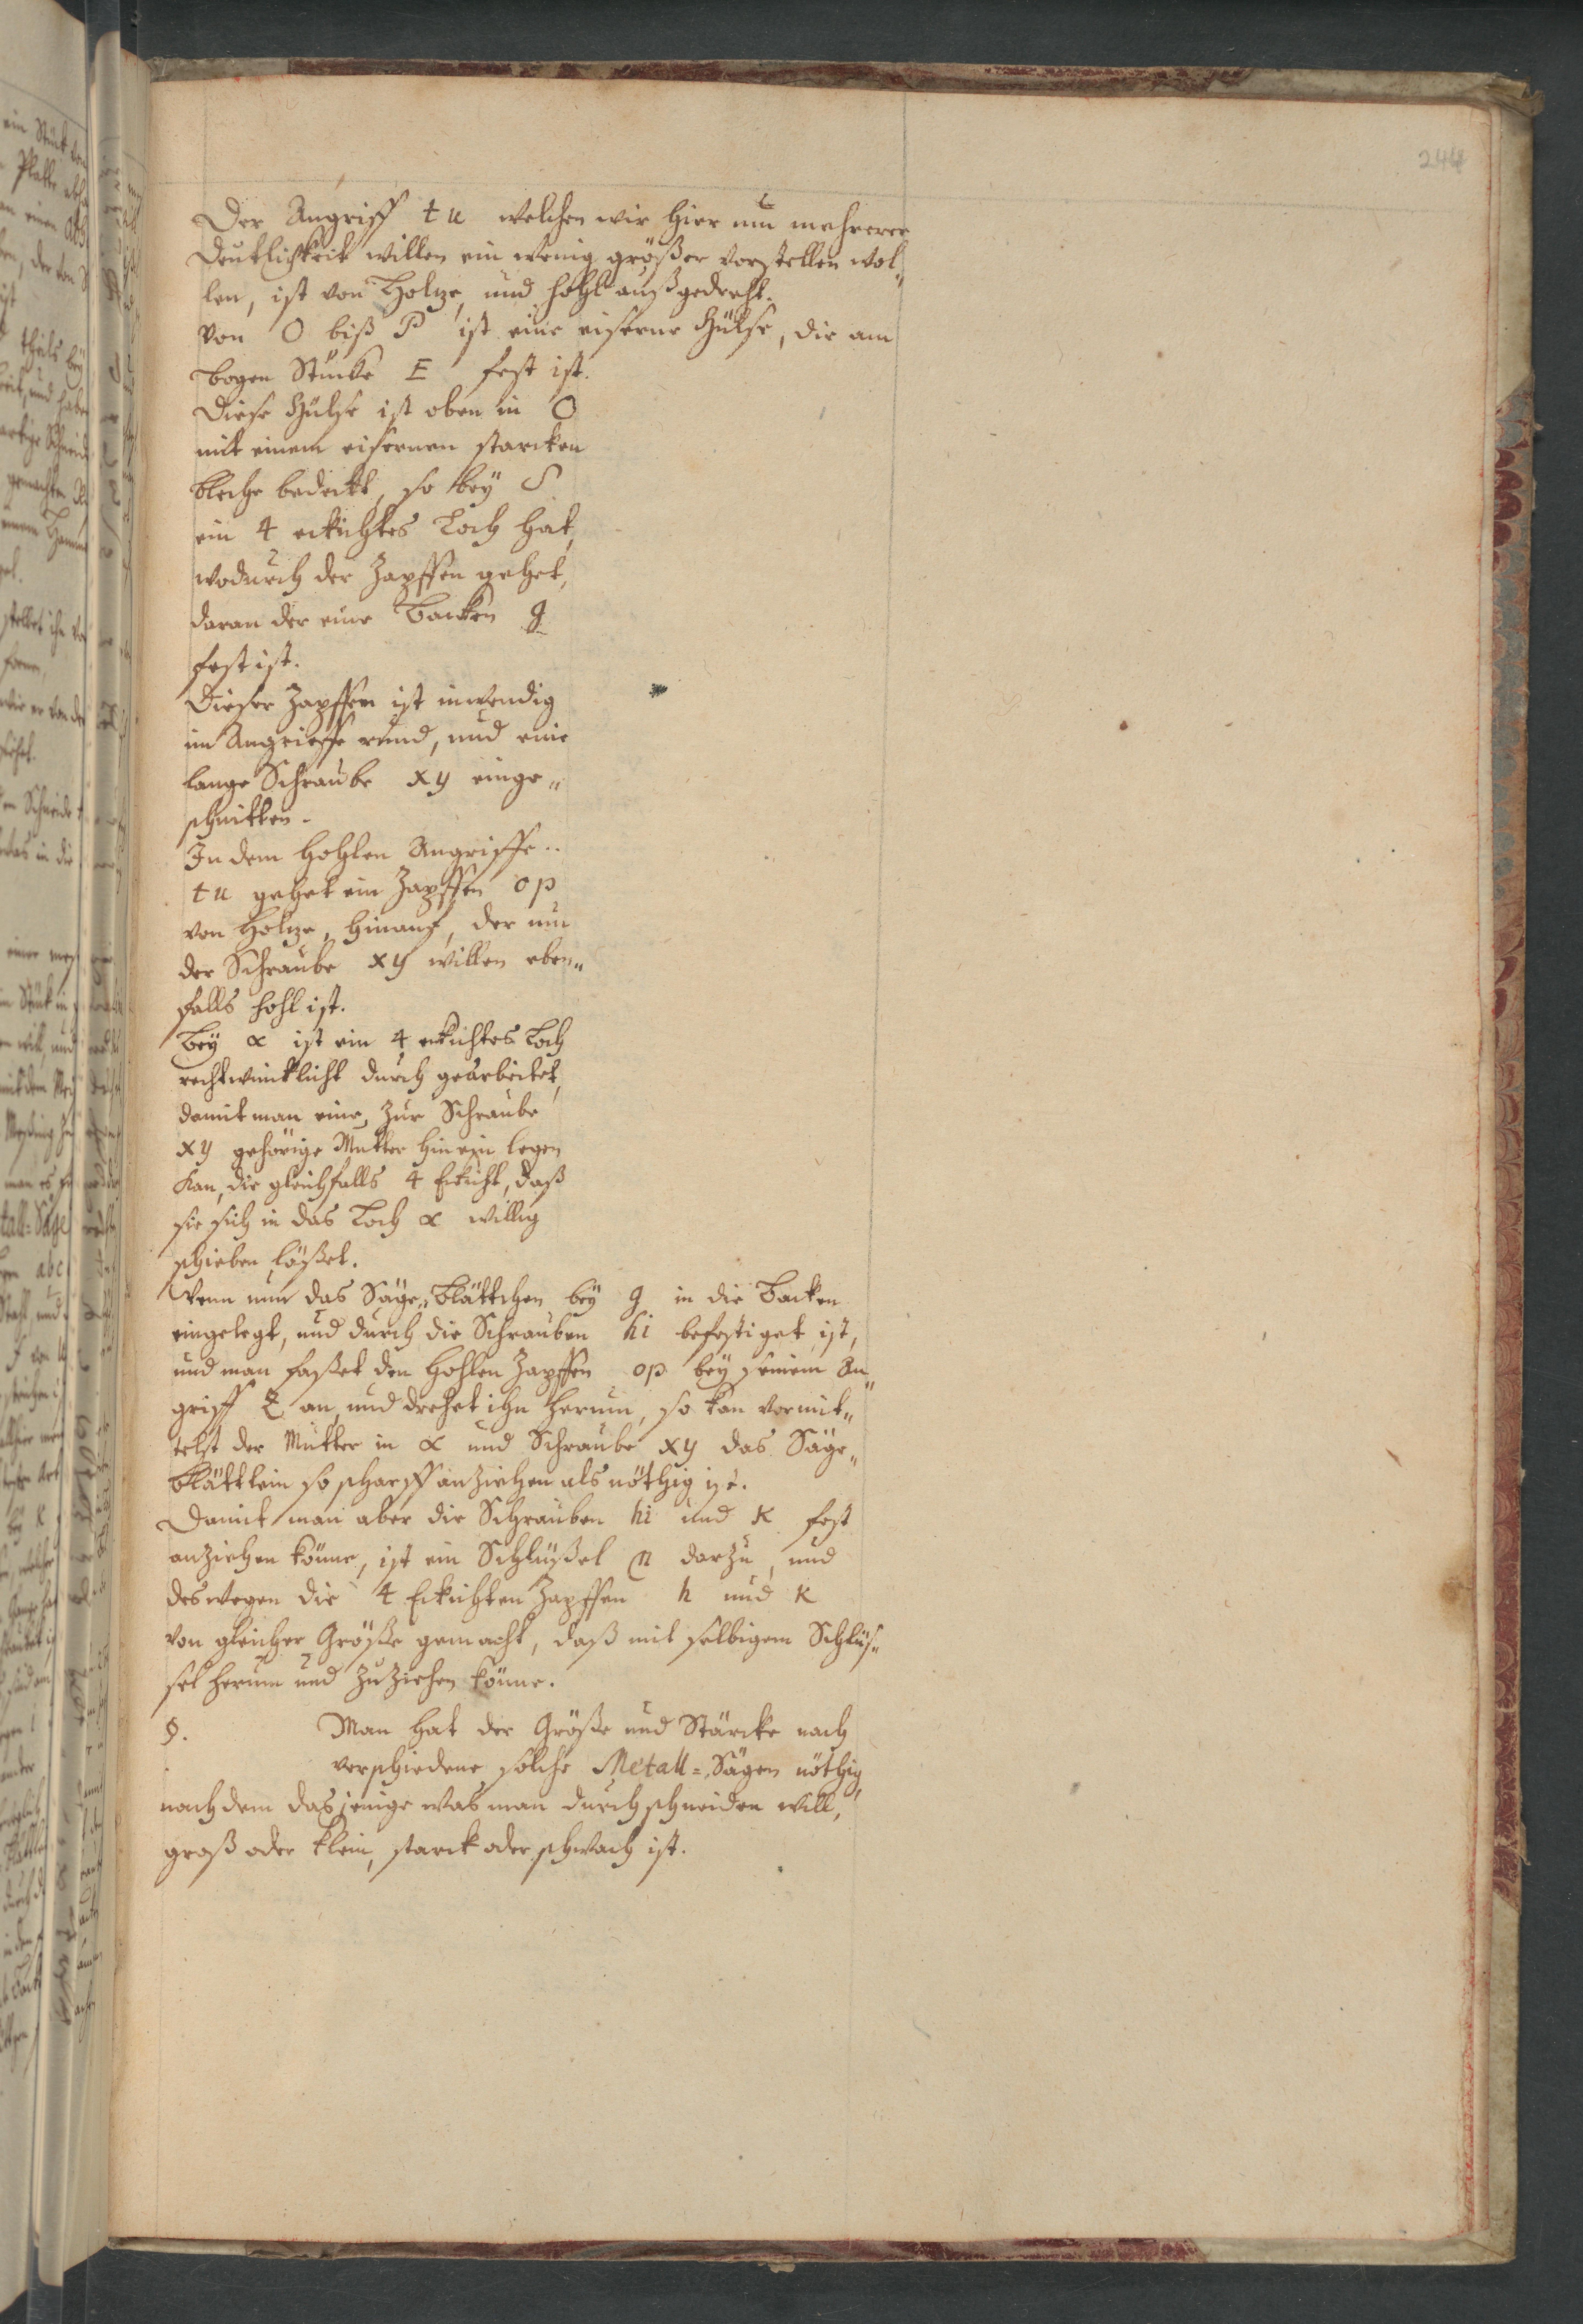 244
Der Angriff tu welchen wir hier um mehrerer
Deutlichkeit willen ein wenig größer vorstellen wol„
len, ist von Holtze, und hohl außgedreht.
Von O biß P ist eine eiserne Hülse, die am
Bogen Stücke E fest ist.
Diese Hülse ist oben in O
mit einem eisernen starcken
bleche bedeckt, so bey S
ein 4 eckichtes Loch hat,
wodurch der Zapffen gehet,
daran der eine Backen g
fest ist.
Dieser Zapffen ist inwendig
im Angrieffe rund, und eine
lange Schraube xy einge„
schnitten.
In dem hohlen Angriffe..
tu gehet ein Zapffen op
von Holtze, hinauf, der um
der Schraube xy willen eben„
falls hohl ist.
Bey α ist ein 4 eckichtes Loch
rechtwincklicht durch gearbeitet,
damit man eine, zur Schraube
xy gehörige Mutter hinein legen
kan, die gleichfalls 4 Eckicht, daß
sie sich in das Loch α willig
schieben läßet.
Wenn nun das Säge„Blättchen bey g in die Backen
eingelegt, und durch die Schrauben hi befestiget ist,
und man faßet den hohlen Zapffen op bey seinem An„
griff Z an, und drehet ihn herum, so kan vermit„
telst der Mutter in α und Schraube xy das Säge„
blättlein so scharff anziehen als nöthig ist.
Damit man aber die Schrauben hi und K fest
anziehen könne, ist ein Schlüßel n darzu, und
deswegen die 4 Eckichten Zapffen h und K
von gleicher Größe gemacht, daß mit selbigem Schlüs„
sel herum und zuziehen könne.
§. Man hat der Größe und Stärcke nach
verschiedene solche Metall=Sägen nöthig,
nachdem dasjenige was man durchschneiden will,
groß oder klein, starck oder schwach ist.